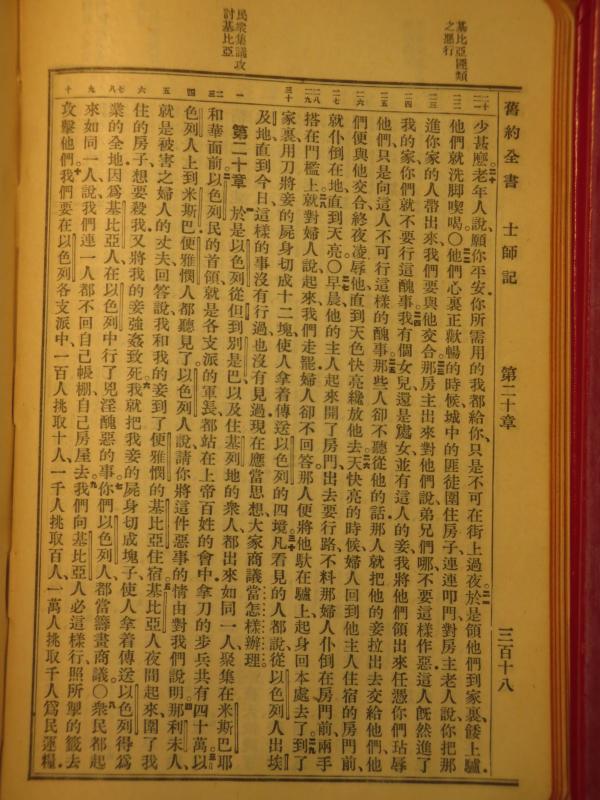 舊約全書 士師記 第二十章 三百十八
基比亞匪類
之惡行
民衆集議攻
討基比亞
少甚麽老年人說願你平安你所需用的我都給你只是不可在街上過夜於是領他們到家裏餧上驢
他們就洗脚喫喝〇他們心裏正歡暢的時候城中的匪徒圍住房子連連叩門對房主老人說你把那
進你家的人帶出來我們要與他交合那房主出來對他們說弟兄們哪不要這樣作惡這人旣然進了
我的家你們就不要行這醜事我有個女兒還是處女並有這人的妾我將他們領出來任憑你們玷辱
他們只是向這人不可行這樣的醜事那些人卻不聽從他的話那人就把他的妾拉出去交給他們他
們便與他交合終夜凌辱他直到天色快亮纔放他去天快亮的時候婦人回到他主人住宿的房門前
就仆倒在地直到天亮〇早晨他的主人起來開了房門出去要行路不料那婦人仆倒在房門前兩手
搭在門檻上就對婦人說起來我們走罷婦人卻不回答那人便將他馱在驢上起身回本處去了到了
家裏用刀將妾的屍身切成十二塊使人拿着傳送以色列的四境凡看見的人都說從以色列人出埃
及地直到今日這樣的事沒有行過也沒有見過現在應當思想大家商議當怎樣辦理
第二十章 於是以色列從但到別是巴以及住基列地的衆人都出來如同一人聚集在米斯巴耶
和華面前以色列民的首領就是各支派的軍長都站在上帝百姓的會中拿刀的步兵共有四十萬以
色列人上到米斯巴便雅憫人都聽見了以色列人說請你將這件惡事的情由對我們說明那利未人
就是被害之婦人的丈夫回答說我和我的妾到了便雅憫的基比亞住宿基比亞人夜間起來圍了我
住的房子想要殺我又將我的妾強姦致死我就把我妾的屍身切成塊子使人拿着傳送以色列得爲
業的全地因爲基比亞人在以色列中行了兇淫醜惡的事你們以色列人都當籌畫商議〇衆民都起
來如同一人說我們連一人都不回自己帳棚自己房屋去我們向基比亞人必這樣行照所掣的籤去
攻擊他們我們要在以色列各支派中一百人挑取十人一千人挑取百人一萬人挑取千人爲民運糧